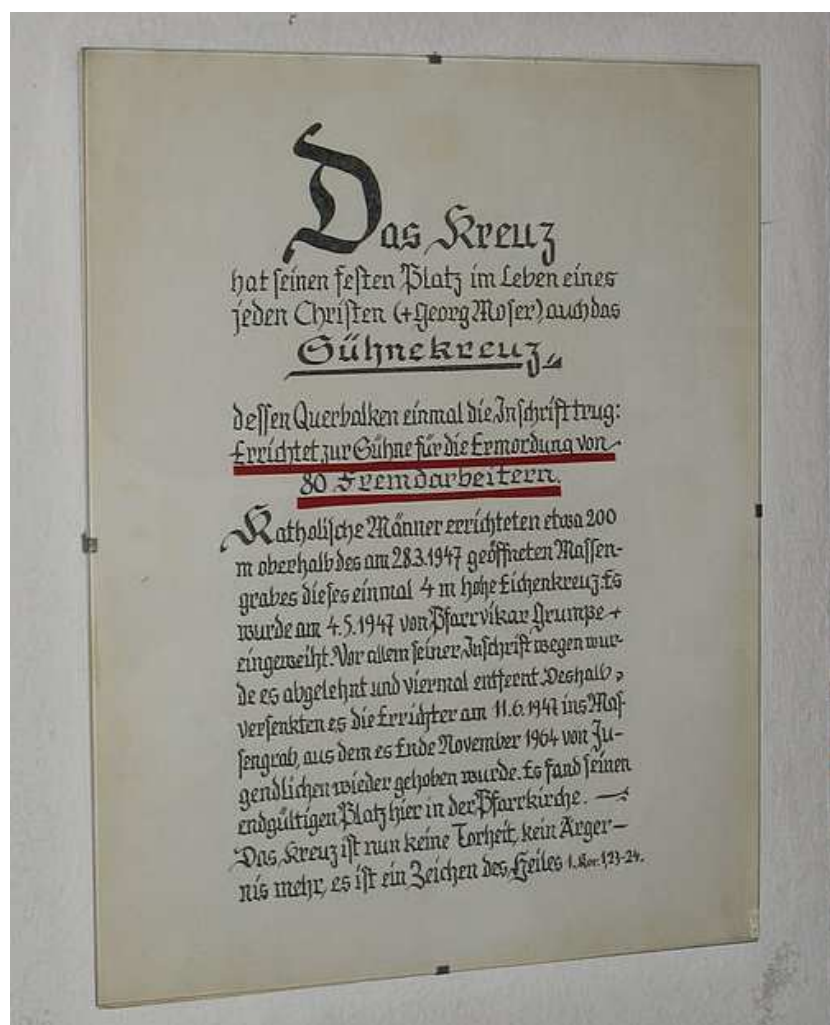 Das Kreuz
hat seinen festen Platz im Leben eines
jeden Christen (+Georg Moser) auch das
Sühnekreuz,
dessen Querbalken einmal die Inschrift trug:
Errichtet zur Sühne für die Ermordung von
80 Fremdarbeitern.
Katholische Männer errichteten etwa 200
m oberhalb des am 28.3.1947 geöffneten Massen-
grabes dieses einmal 4 m hohe Eichenkreuz. Es
wurde am 4.5.1947 von Pfarrvikar Grumpe +
eingeweiht. Vor allem seiner Inschrift wegen wur-
de es abgelehnt und viermal entfernt. Deshalb
versenkten es die Errichter am 11.6.1947 ins Mas-
sengrab, aus dem es Ende November 1964 von Ju-
gendlichen wieder gehoben wurde. Es fand seinen
endgültigen Platz hier in der Pfarrkirche. —
Das Kreuz ist nun keine Torheit, kein Ärger-
nis mehr, es ist ein Zeichen des Heiles 1. Kor. 1,23-24.